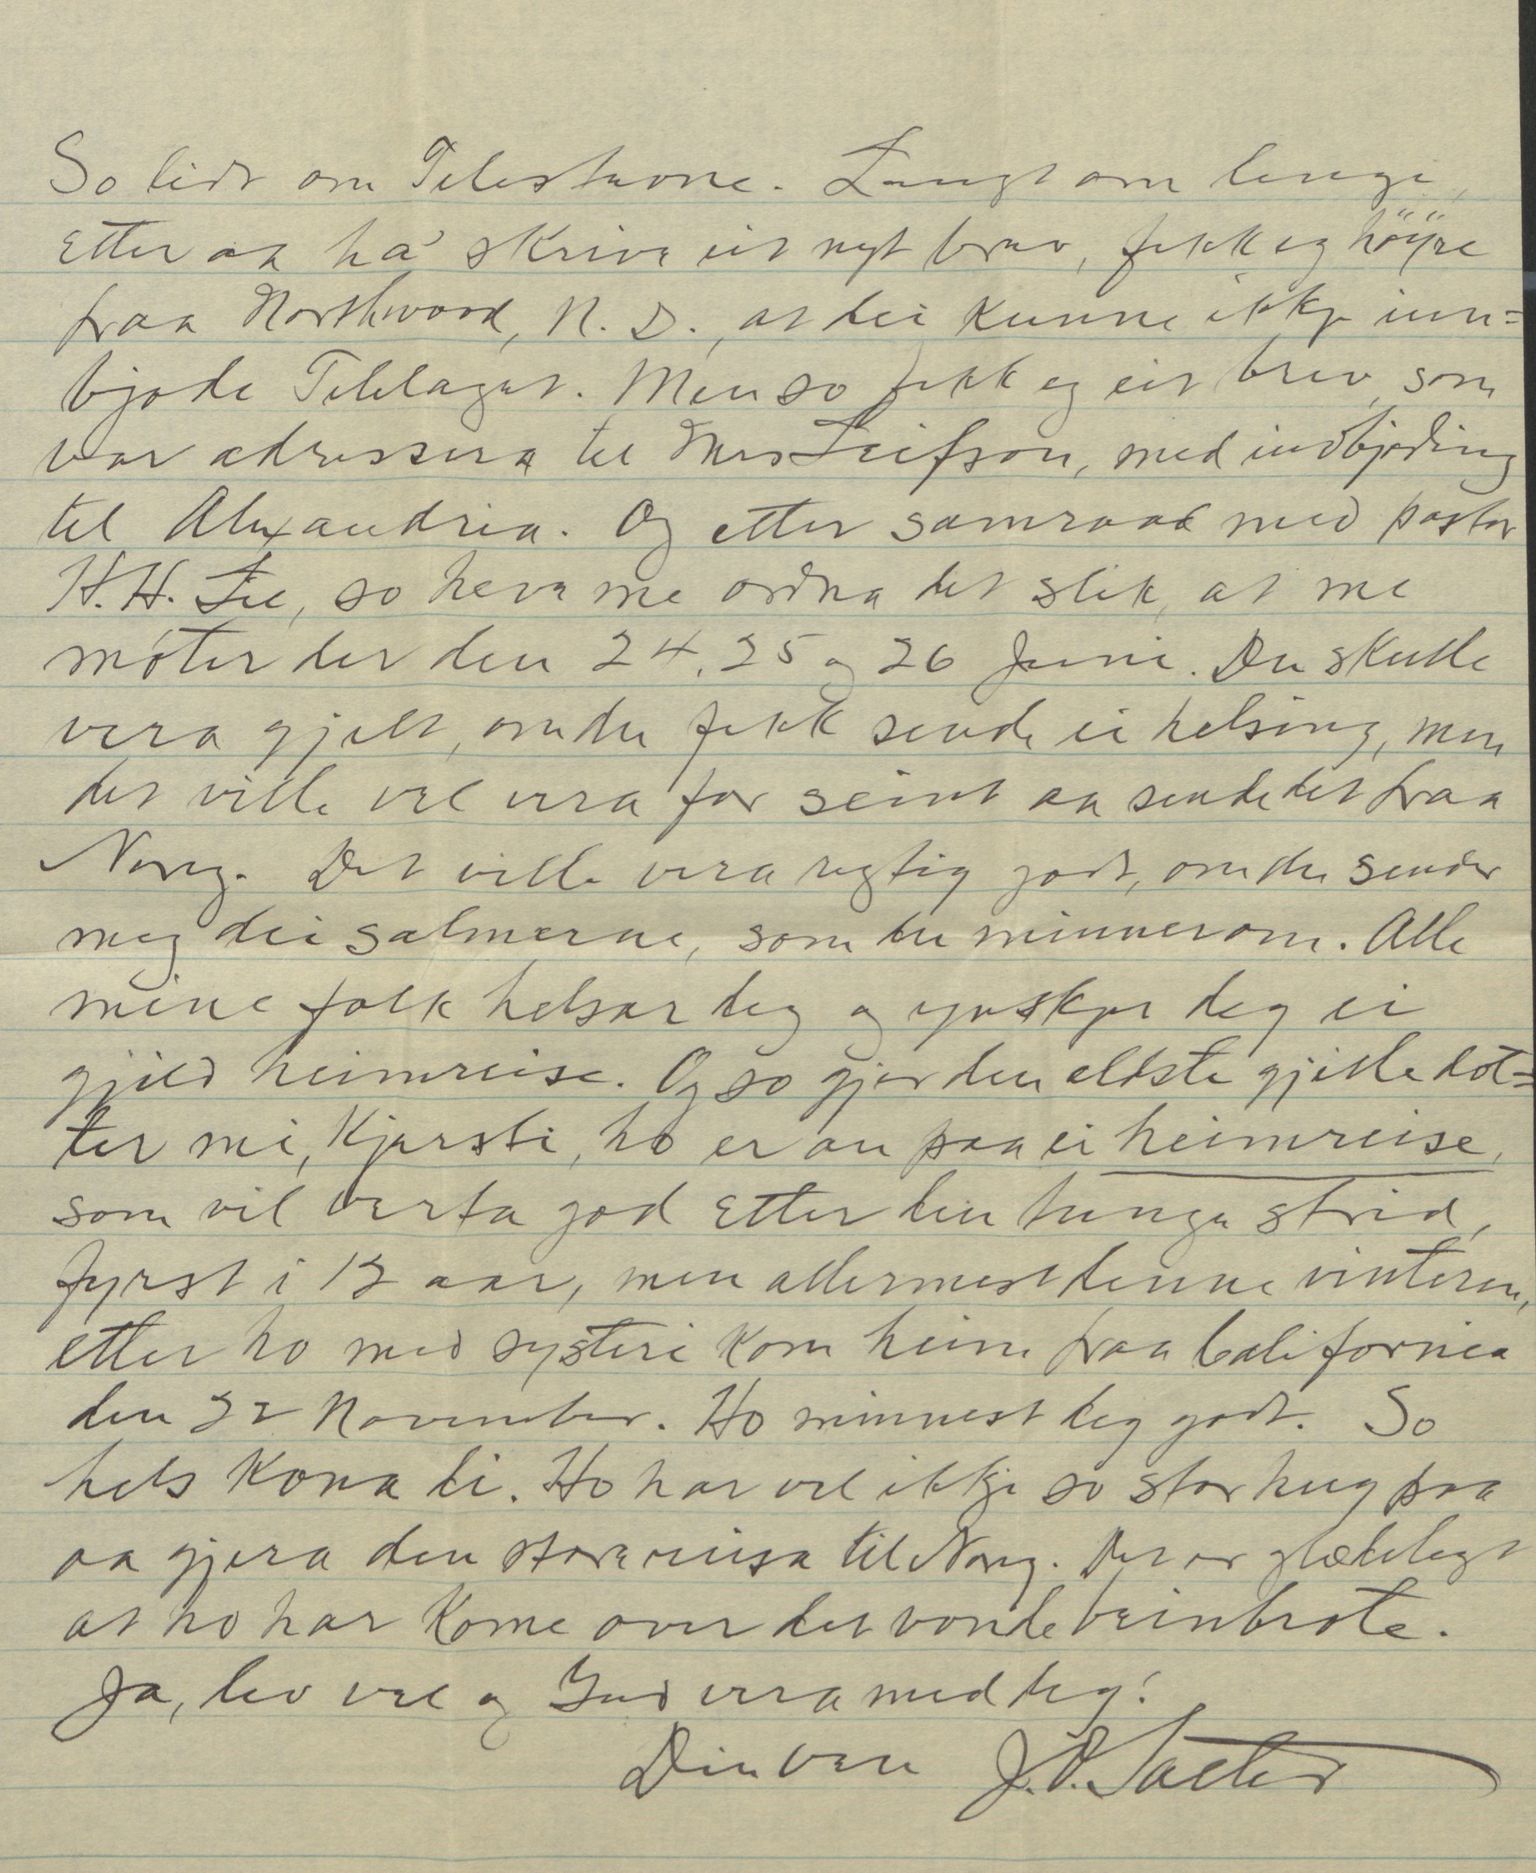 So lidt om Telestevne. Langt om lenge,
etter aa ha skrive eit nyt brev, fekk eg höyre
fraa Northwood, N. D., at dei kunne ikkje inn=
bjode Telelaget. Men so fekk eg eit brev, som
var adressera til Mrs Leifson, med indbjoding
til Alexandria. Og etter samraad med pastor
H. H. Lee, so heve me ordna det slik, at me
møter der den 24, 25 og 26 Juni. Du skulle
vera gjild, om du fekk sende ei helsing, men
det ville vel vera for seint aa sende det fraa
Noreg. Det ville vera rigtig godt, om du sender
meg dei salmerne, som du minner om. Alle
mine folk helsar deg og ynskjer deg ei
gjild heimreise. Og so gjer den eldste gjille dot=
ter mi, Kjersti, ho er au paa ei heimreise,
som vil verta god etter den tunge strid,
fyrst i 13 aar, men allermest denne vinteren,
etter ho med systeri kom heim fraa California
den 22 November. Ho minnest deg godt. So
hels Kona di. Ho har vel ikkje so stor hug paa
aa gjera den store reisa til Noreg. Det er glædelegt
at ho har kome over det vonde beinbrote.
Ja, lev vel og Gud vera med deg!
Din ven J. O. Sæter